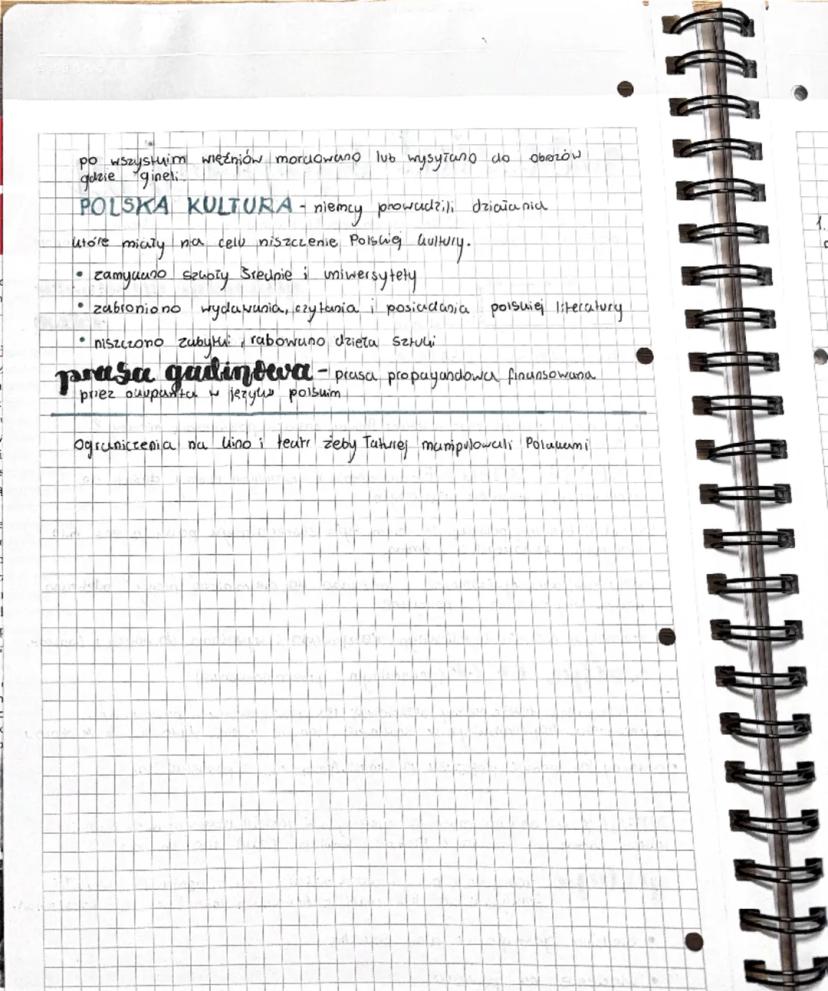 po wszystkim więźniów mordowano lub wysyłano do obozów
gdzie gineli.
POLSKA KULTURA - niemcy prowadzili działania
które miały na celu niszczenie Polskiej kultury.
• zamykano szkoły średnie i uniwersytety
• zabroniono wydawania, czytania i posiadania polskiej literatury
• niszczono zabytki, rabowano dzieła sztuki
prasa gadinowa - prasa propagandowa finansowana
przez okupanta w języku polskim
Ograniczenia na kino i teatr żeby łatwiej manipulowali Polakami